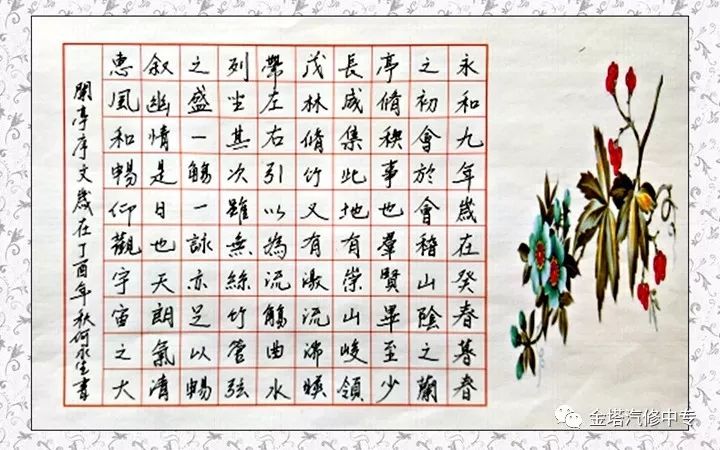 永和九年歲在癸春暮春
之初會於會稽山陰之蘭
亭脩稧事也羣賢畢至少
長咸集此地有崇山峻領
茂林脩竹又有激流湍暎
帶左右引以為流觴曲水
列坐其次雖無絲竹管弦
之盛一觴一詠亦足以暢
叙幽情是日也天朗氣清
惠風和暢仰觀宇宙之大
蘭亭序文歲在丁酉年秋何永生書
金塔汽修中专